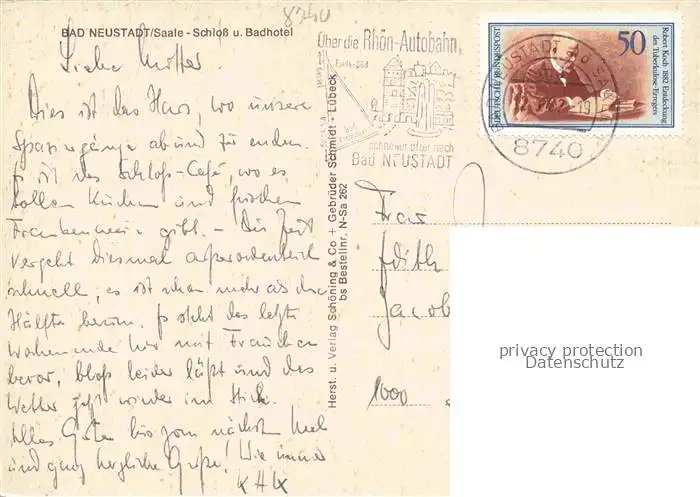 8740
BAD NEUSTADT/Saale - Schloß u. Badhotel
Liebe Mutter
Dies ist das Haus, wo unsere
Spaziergänge ab und zu enden.
Es ist das Schloß-Café, wo es
tollen Kuchen und frischen
Frankenwein gibt. - Die Zeit
vergeht diesmal außerordentlich
schnell, es ist schon mehr als die
Hälfte herum. Es steht das letzte
Wochenende hier mit Frauchen
bevor, bloß leider läßt und das
Wetter jetzt wieder im Stich.
Alles Gute bis zum nächsten Mal
und ganz herzliche Grüße! Wie immer
KHK
Herst. u. Verlag Schöning & Co + Gebrüder Schmidt - Lübeck
bs Bestellnr. N-Sa 262
Über die Rhön-Autobahn,
schneller öfter nach
Bad NEUSTADT
50
Robert Koch 1882 Entdeckung
des Tuberkulose-Erregers
DEUTSCHE BUNDESPOST
BAD NEUSTADT A D SAALE
8740
Frau
Edith
Jacob
1000
privacy protection
Datenschutz